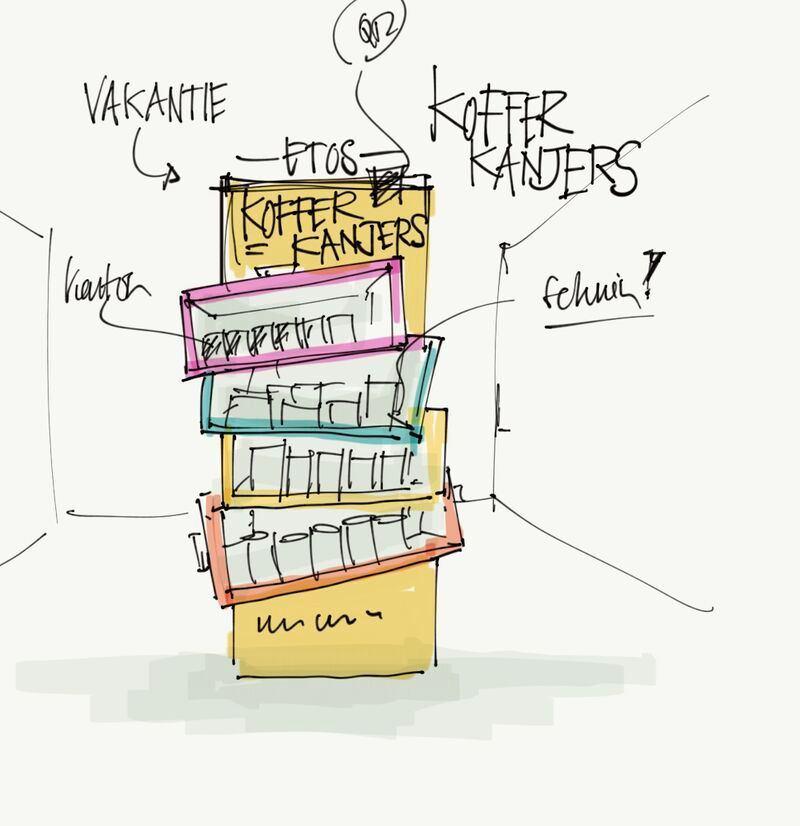 QR
VAKANTIE
KOFFER
KANJERS
ETOS
KOFFER
= KANJERS
karton
schuin!